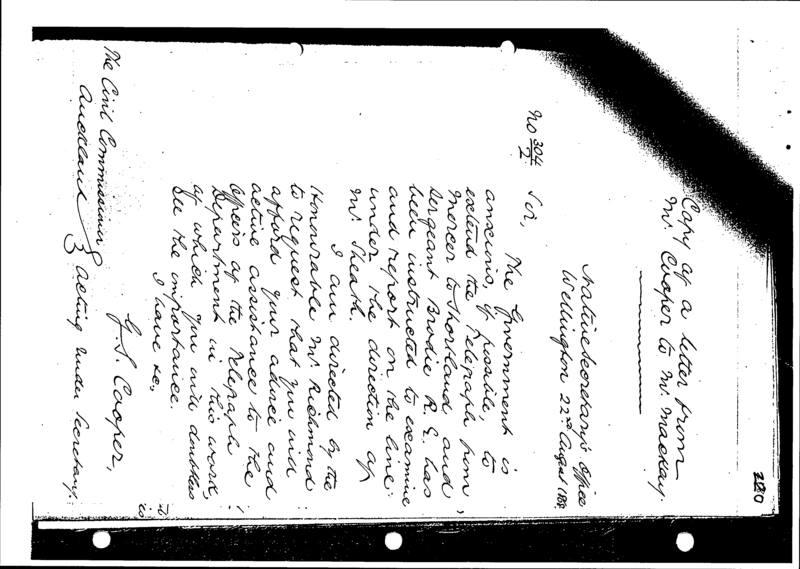 220
Copy of a letter from
Mr. Cooper to Mr. Mackay.
Native Secretary's Office
Wellington 22nd August
No 304/2
Sir,
The Government is
anxious, if possible, to
extend the Telegraph from
Mercer to Shortland and
Sergeant Brodie R. E. has
been instructed to examine
and report on the line
under the direction of
Mr Sheath.
I am directed by the
Honourable Mr. Richmond
to request that you will
afford your advice and
active assistance to the
Officers of the Telegraph
Department in this work,
of which you will doubtless
see the importance.
I have &c,
G. S. Cooper,
Acting Under Secretary.
The Civil Commissioner
Auckland